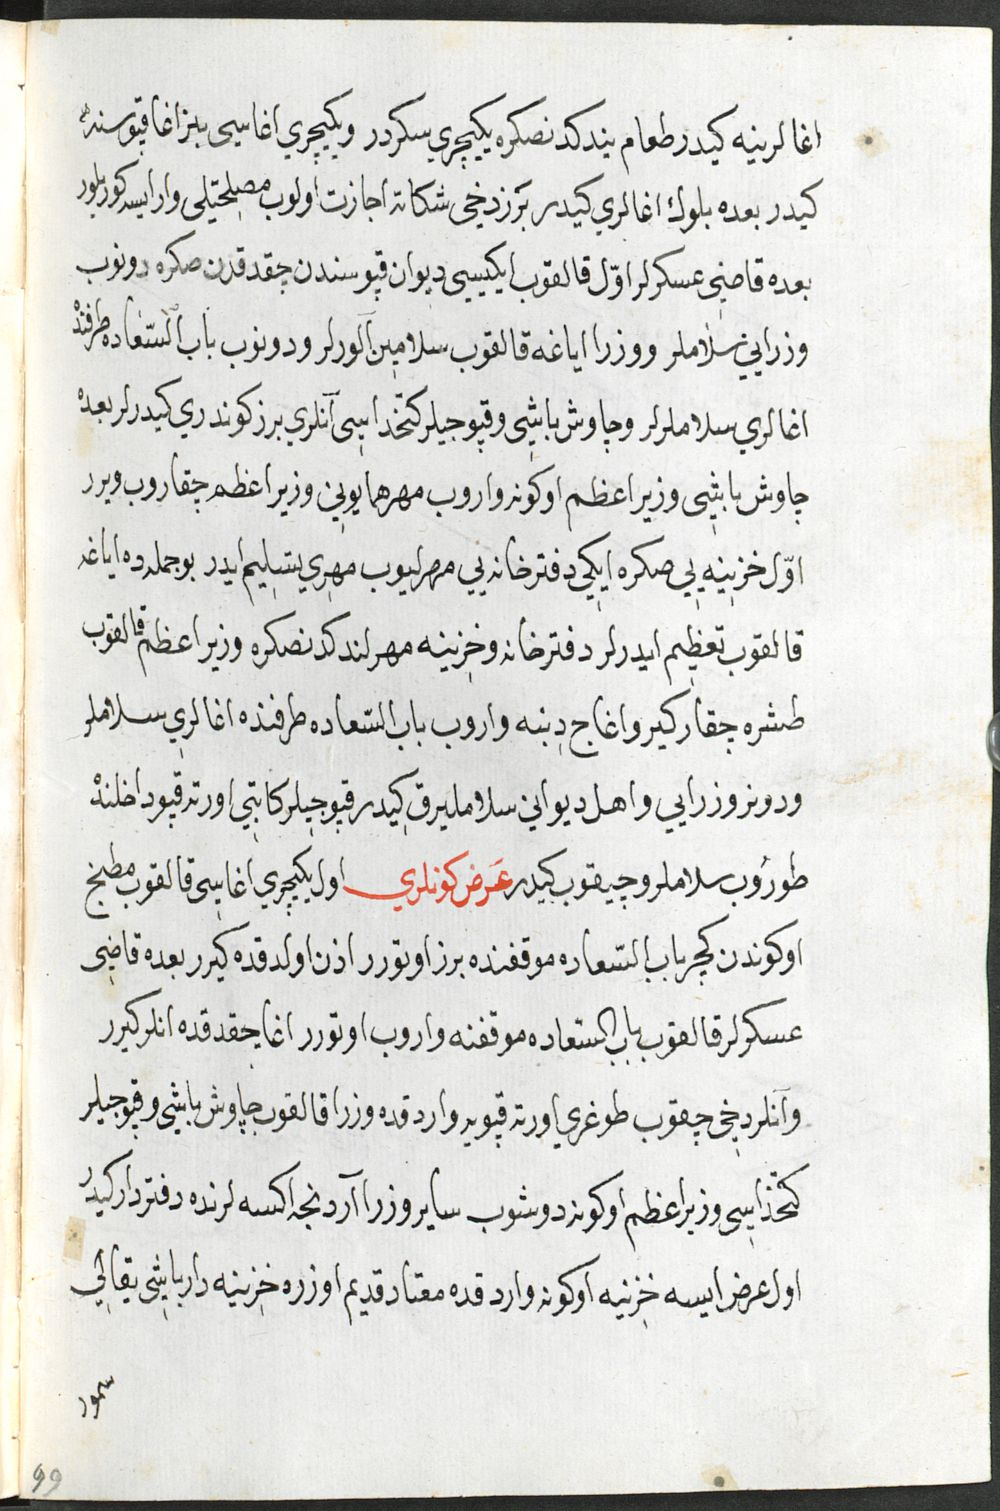 اغالرینه کیدر طعام یندکدنصکره یکیچری سکردر ویکیچری اغاسیی بیز اغا قپوسنده
کیدر بعده بلوك اغالری کیدر بر بر دخی شکاته اجازت اولوب مصلحتیلی وار ایسه کوریلور
بعده قاضی عسکرلر اوّل قالقوب ایکیسی دیوان قپوسندن چقدقدن صکره دونوب
وزرایی سلاملر ووزرا ایاغه قالقوب سلامین آلورلر ودونوب باب السّعاده طرفنده
اغالری سلاملرلر وچاوش باشی وقپوجیلر کتخداسی آنلری برز کوندری کیدرلر بعده
چاوش باشی وزیر اعظم اوکونه واروب مهر همایونی وزیر اعظم چقاروب ویرر
اوّل خزینه یی صکره ایکی دفترخانه یی مهرلیوب مهری تسلیم ایدر بو جمله ده ایاغه
قالقوب تعظیم ایدرلر دفترخانه وخزینه مهرلندکدنصکره وزیر اعظم قالقوب
طشره چقار کیرو اغاج دبنه واروب باب السّعاده طرفنده اغالری سلاملر
ودونر وزرایی واهل دیوانی سلاملیرق کیدر قپوجیلر کاتبی اورته قپو داخلنده
طوروب سلاملر وچیقوب کیدر عرض کونلری اول یکیچری اغاسی قالقوب مطبخ
اوکوندن کچر باب السّعاده موقفنده برز اوتورر اذن اولدقده کیرر بعده قاضی
عسکرلر قالقوب باب السّعاده موقفنه واروب اوتورر اغا چقدقده انلر کیرر
وآنلر دخی چقوب طوغری اورته قپویه واردقده وزرا قالقوب چاوش باشی وقپوجیلر
کتخداسی وزیر اعظم اوکونه دوشوب سایر وزرا آردنجه اکسه لرنده دفتردار کیدر
اول عرض ایسه خزینه اوکونه واردقده معتاد قدیم اوزره خزینه دار باشی یقالی
سمور
99